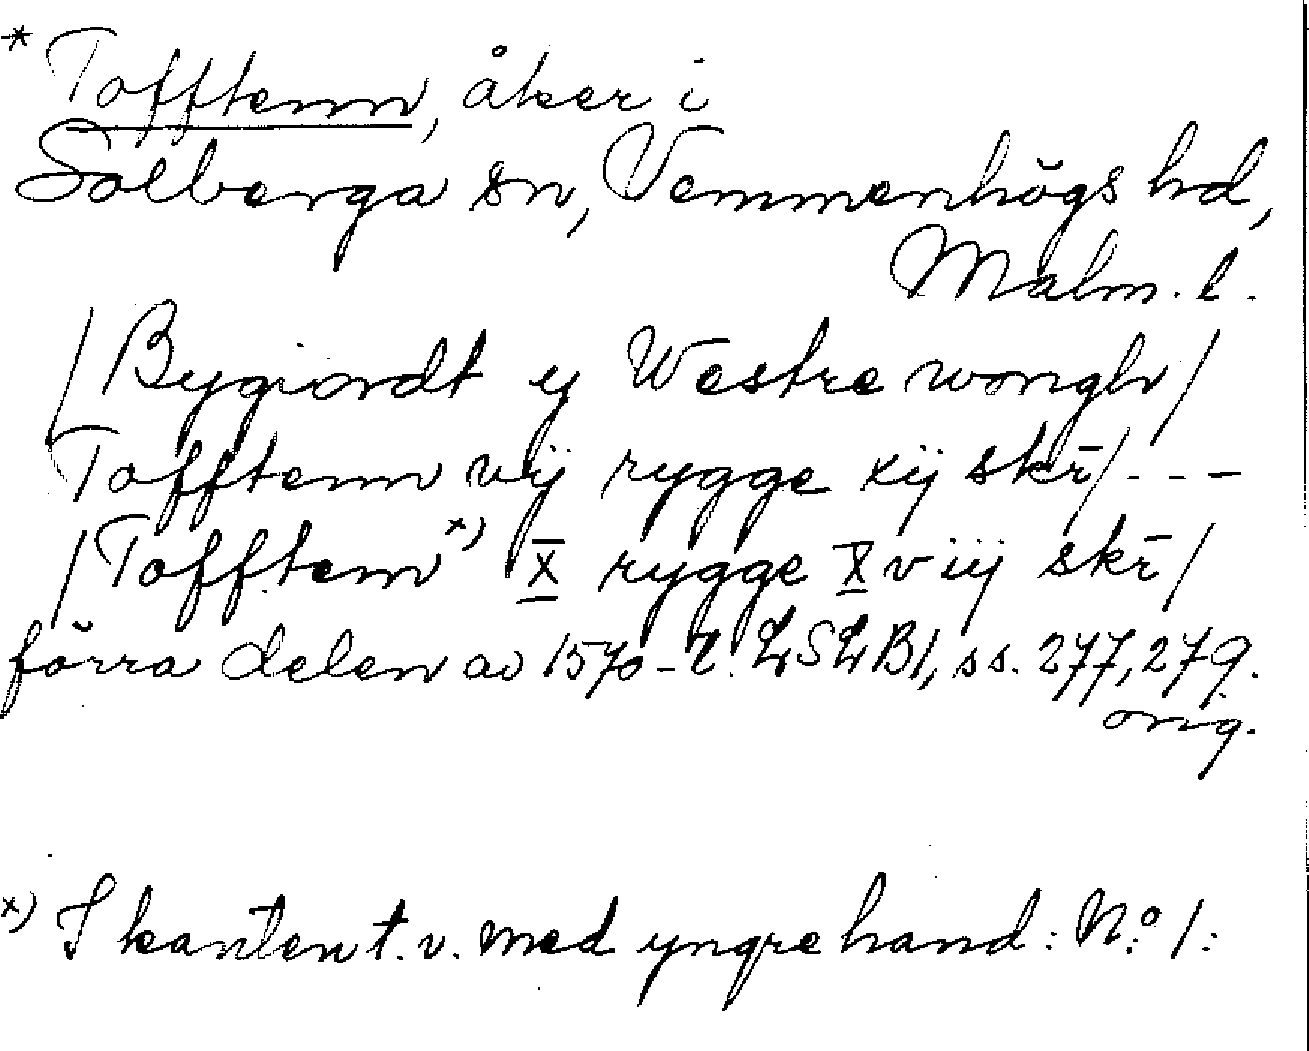 * Tofftenn, åker i
Solberga sn, Vemmenhögs hd,
Malm. l.
/Bygiordt y Westre wongh/
Tofftenn vij rygge xij skr̄/ - - -
/Tofftenn x) X rygge Xviij skr̄/
förra delen av 1570-t. LSLB1, ss. 277, 279.
orig.
x) I kanten t. v. med yngre hand: N:o 1: